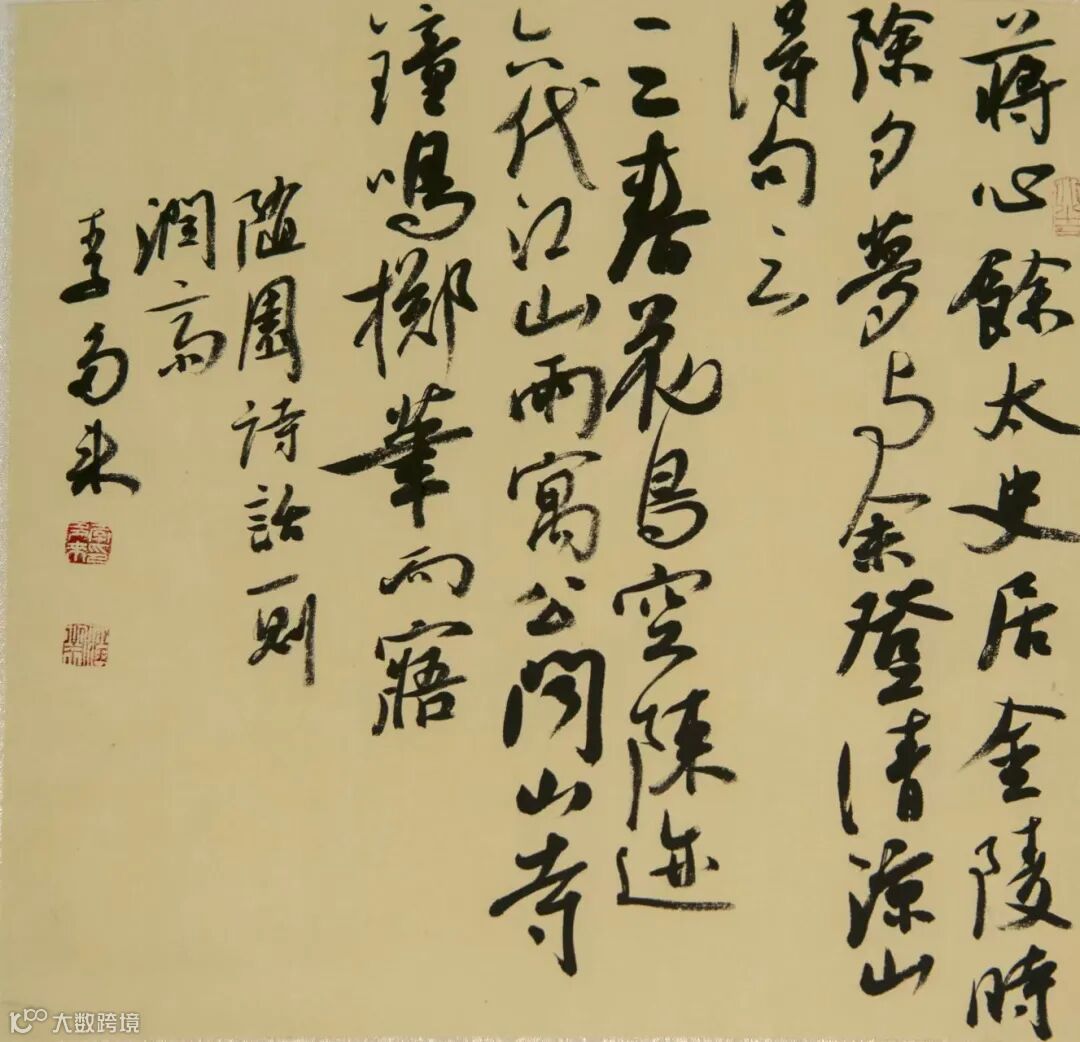 蒋心餘太史居金陵時
除夕夢与余登清涼山
得句云
三春花鳥空陳迹
六代江山兩寓公聞山寺
鐘鳴擲筆而寤
随園詩話一則
潤
李多来
大数跨境